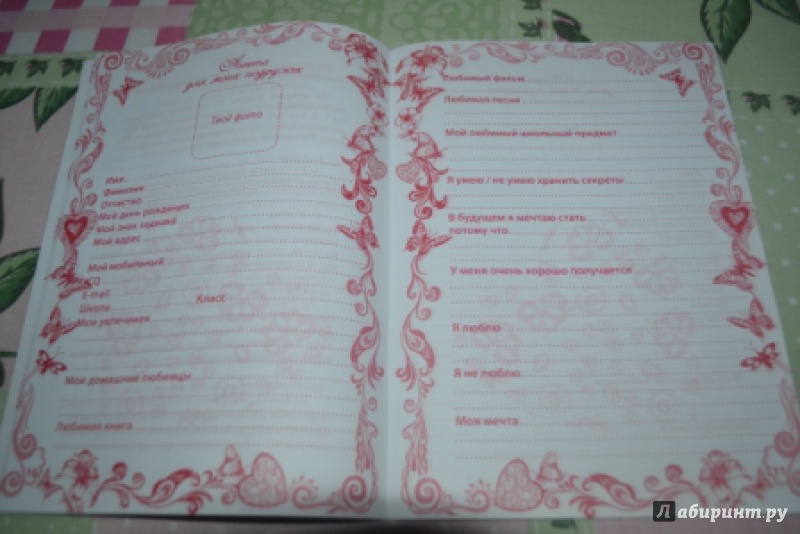 Анкета
для моих подружек
Твоё фото
Имя
Фамилия
Отчество
Мой день рождения
Мой знак зодиака
Мой адрес
Мой мобильный
ICQ
E-mail
Школа Класс
Мои увлечения
Мои домашние любимцы
Любимая книга
Любимый фильм
Любимая песня
Мой любимый школьный предмет
Я умею / не умею хранить секреты
В будущем я мечтаю стать
потому что
У меня очень хорошо получается
Я люблю
Я не люблю
Моя мечта
Лабиринт.ру